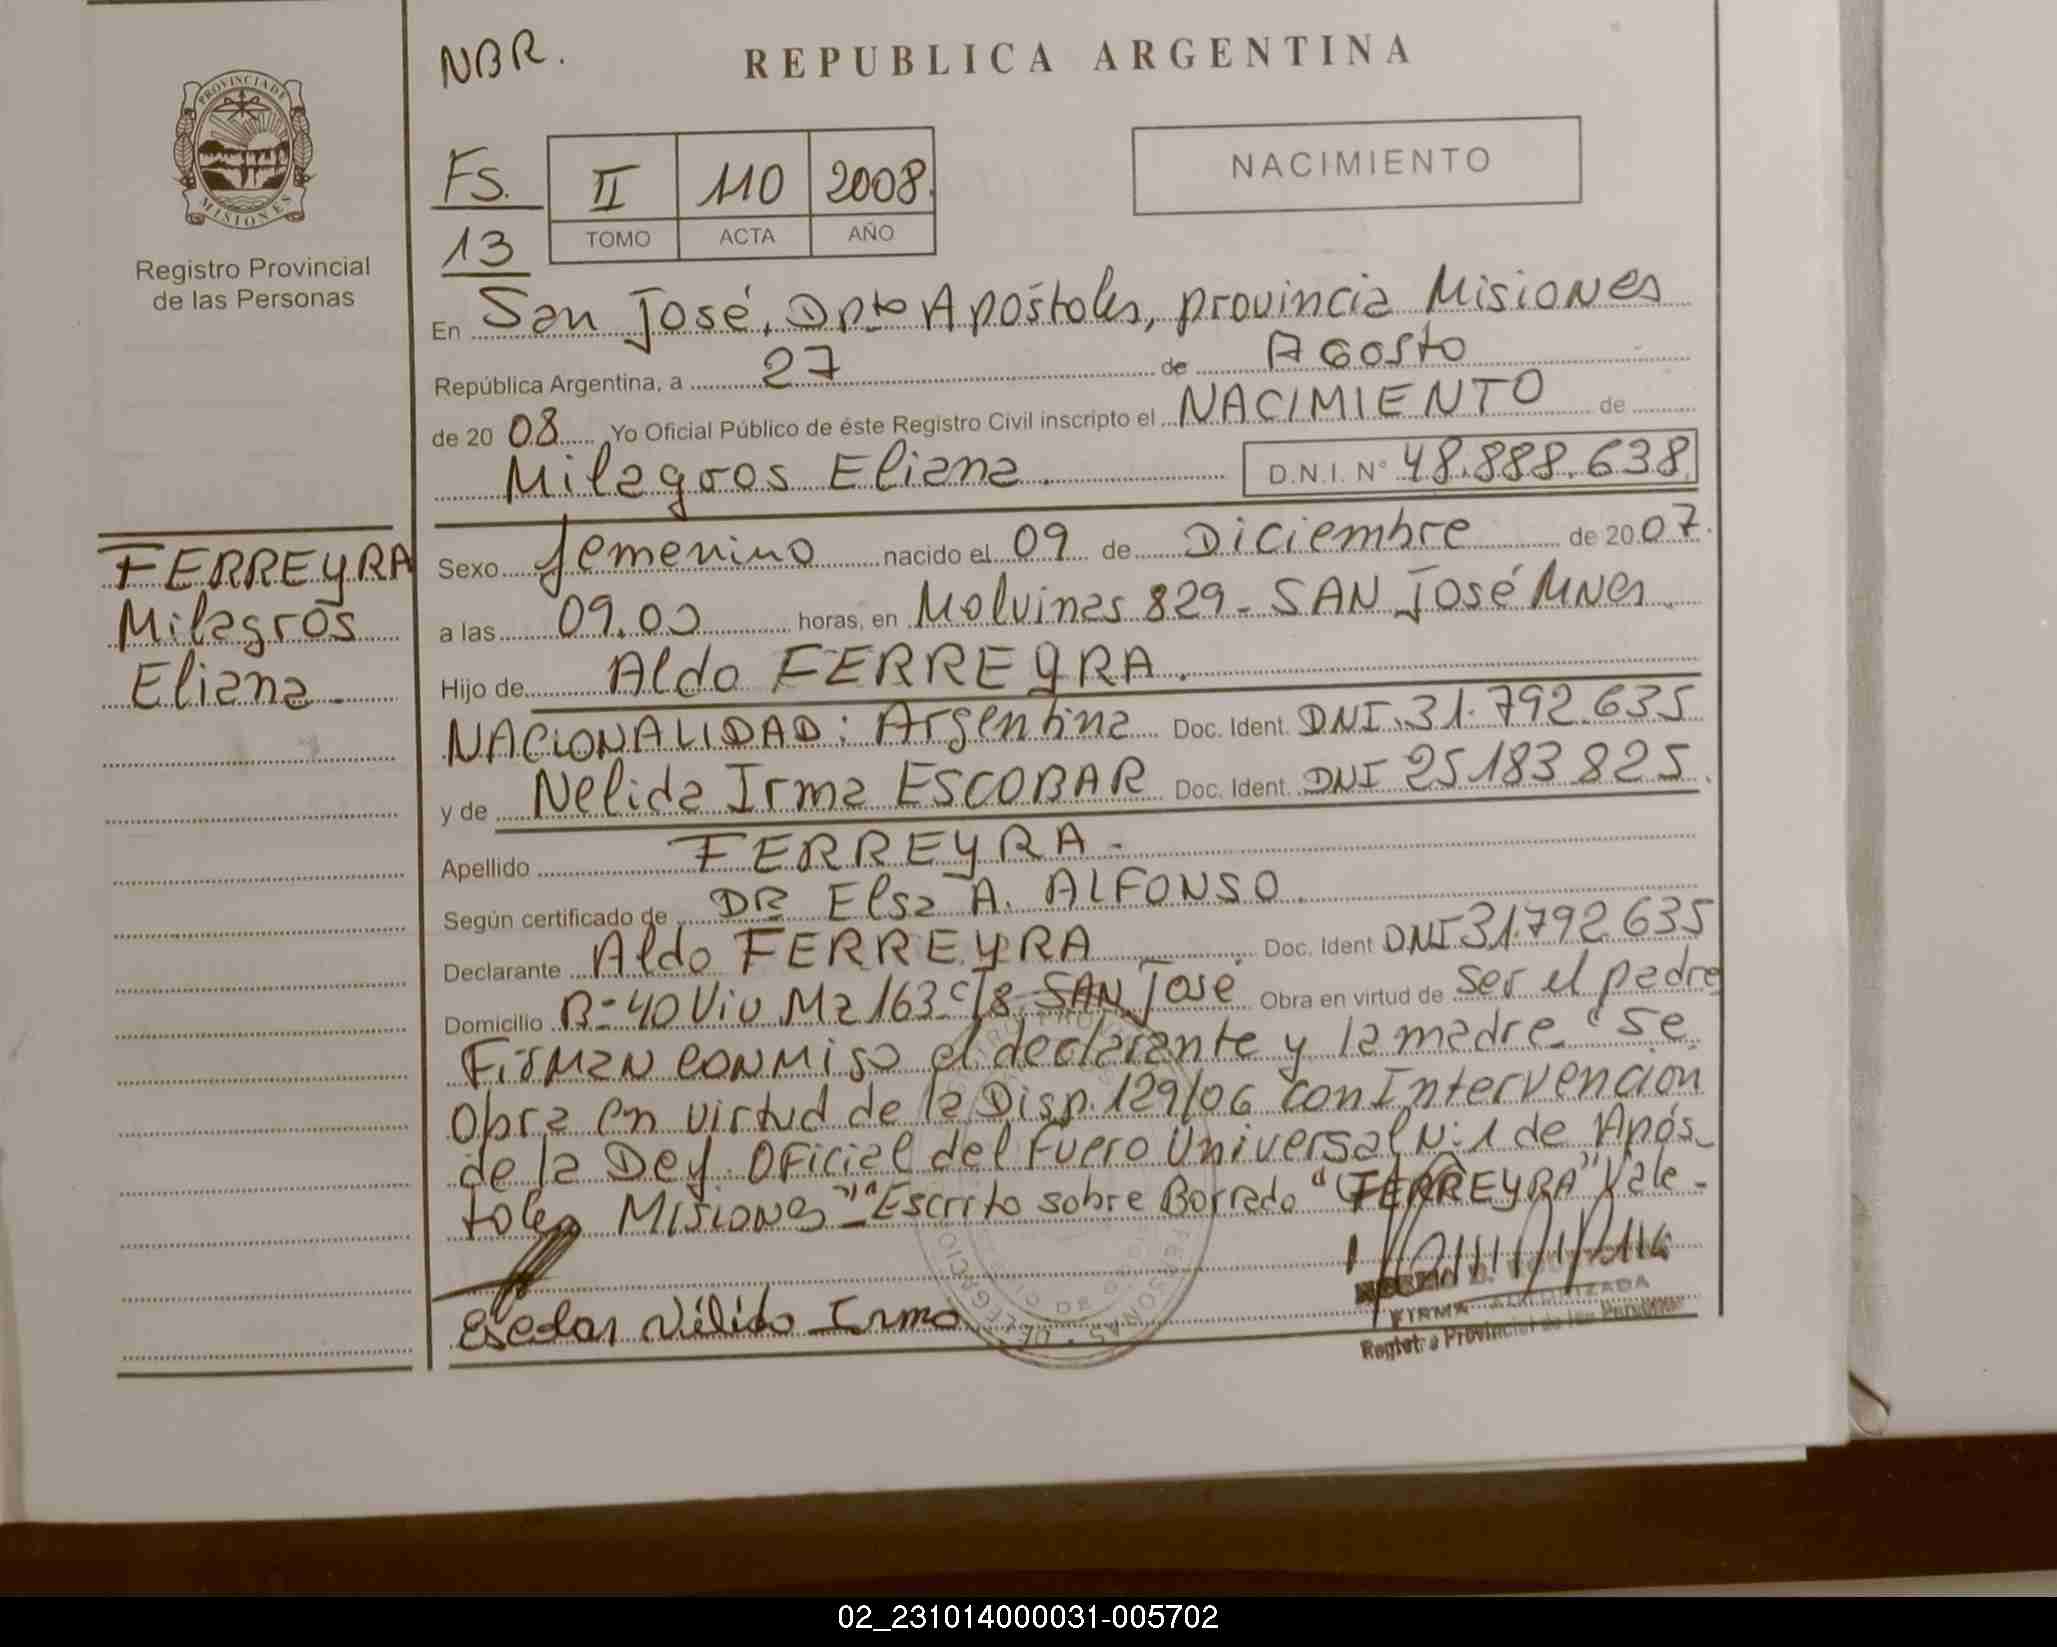 NBR.
REPUBLICA ARGENTINA
PROVINCIA DE
MISIONES
Registro Provincial
de las Personas
Fs. 13
II 110 2008.
TOMO ACTA AÑO
NACIMIENTO
En San José, Dpto Apóstoles, provincia Misiones
República Argentina, a 27 de Agosto
de 20 08 Yo Oficial Público de éste Registro Civil inscripto el NACIMIENTO de
Milagros Eliana. D.N.I. N° 48.888.638
FERREYRA
Milagros
Eliana
Sexo femenino nacido el 09 de Diciembre de 20 07.
a las 09.00 horas, en Malvinas 829- SAN José Mnes
Hijo de Aldo FERREYRA.
NACIONALIDAD: Argentina Doc. Ident. DNI.31.792.635
y de Nelida Irma ESCOBAR Doc. Ident. DNI 25183825.
Apellido FERREYRA-
Según certificado de DR Elsa A. ALFONSO.
Declarante Aldo FERREYRA Doc. Ident DNI 31.792.635
Domicilio B-40 Viv Mz 163 c/8 SAN José Obra en virtud de ser el padre
Firman conmigo el declarante y la madre "Se
Obra en virtud de la Disp. 129/06 con Intervención
de la Def. Oficial del Fuero Universal N:1 de Após-
toles Misiones" "Escrito sobre Borrado "FERREYRA" Vale-
Escobar Nélida Irma
FIRMA AUTORIZADA
Registro Provincial de las Personas
02_231014000031-005702